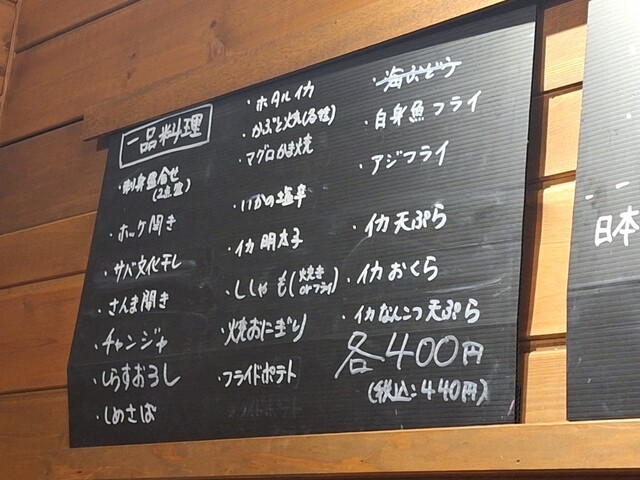 一品料理
・刺身盛合せ
(2点盛)
・ホッケ開き
・サバ文化干し
・さんま開き
・チャンジャ
・しらすおろし
・しめさば
・ホタルイカ
・かぶと焼(各種)
・マグロかま焼
・いかの塩辛
・イカ明太子
・ししゃも(焼き
orフライ)
・焼おにぎり
・フライドポテト
・海ぶどう
・白身魚フライ
・アジフライ
・イカ天ぷら
・イカおくら
・イカなんこつ天ぷら
各400円
(税込:440円)
日本